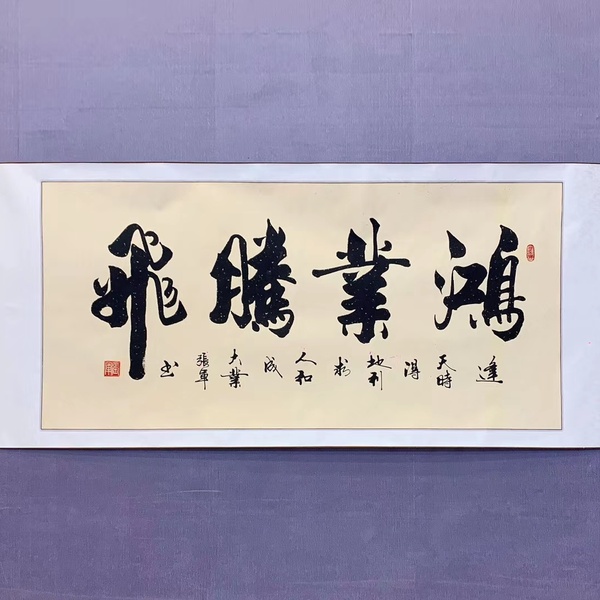 鴻業騰飛
逢
天時
得
地利
人和
成
大業
張軍
书